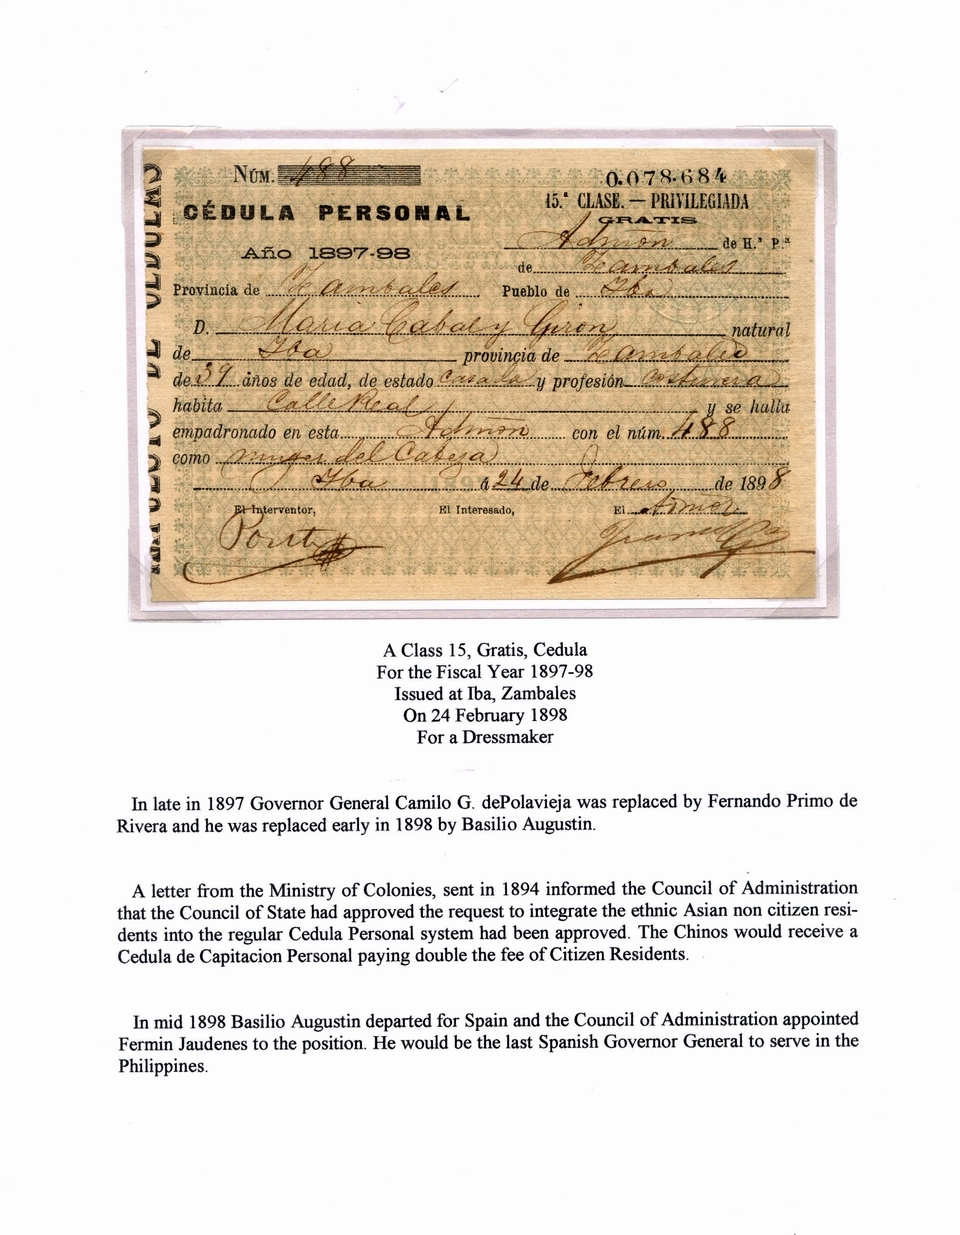 NÚM. 488
0.078.684
15.ª CLASE. — PRIVILEGIADA
CÉDULA PERSONAL
GRATIS
Admón de H.ª P.ª
Año 1897-98
de Zambales
Provincia de Zambales Pueblo de Iba
D. Maria Cabal y Giron natural
de Iba provincia de Zambales
de 39 años de edad, de estado casada y profesión costurera
habita Calle Real y se halla
empadronado en esta Admón con el núm. 488
como muger del Cabeza
Iba á 24 de Febrero de 1898
El Interventor, El Interesado, El Admor
A Class 15, Gratis, Cedula
For the Fiscal Year 1897-98
Issued at Iba, Zambales
On 24 February 1898
For a Dressmaker
In late in 1897 Governor General Camilo G. dePolavieja was replaced by Fernando Primo de
Rivera and he was replaced early in 1898 by Basilio Augustin.
A letter from the Ministry of Colonies, sent in 1894 informed the Council of Administration
that the Council of State had approved the request to integrate the ethnic Asian non citizen resi-
dents into the regular Cedula Personal system had been approved. The Chinos would receive a
Cedula de Capitacion Personal paying double the fee of Citizen Residents.
In mid 1898 Basilio Augustin departed for Spain and the Council of Administration appointed
Fermin Jaudenes to the position. He would be the last Spanish Governor General to serve in the
Philippines.